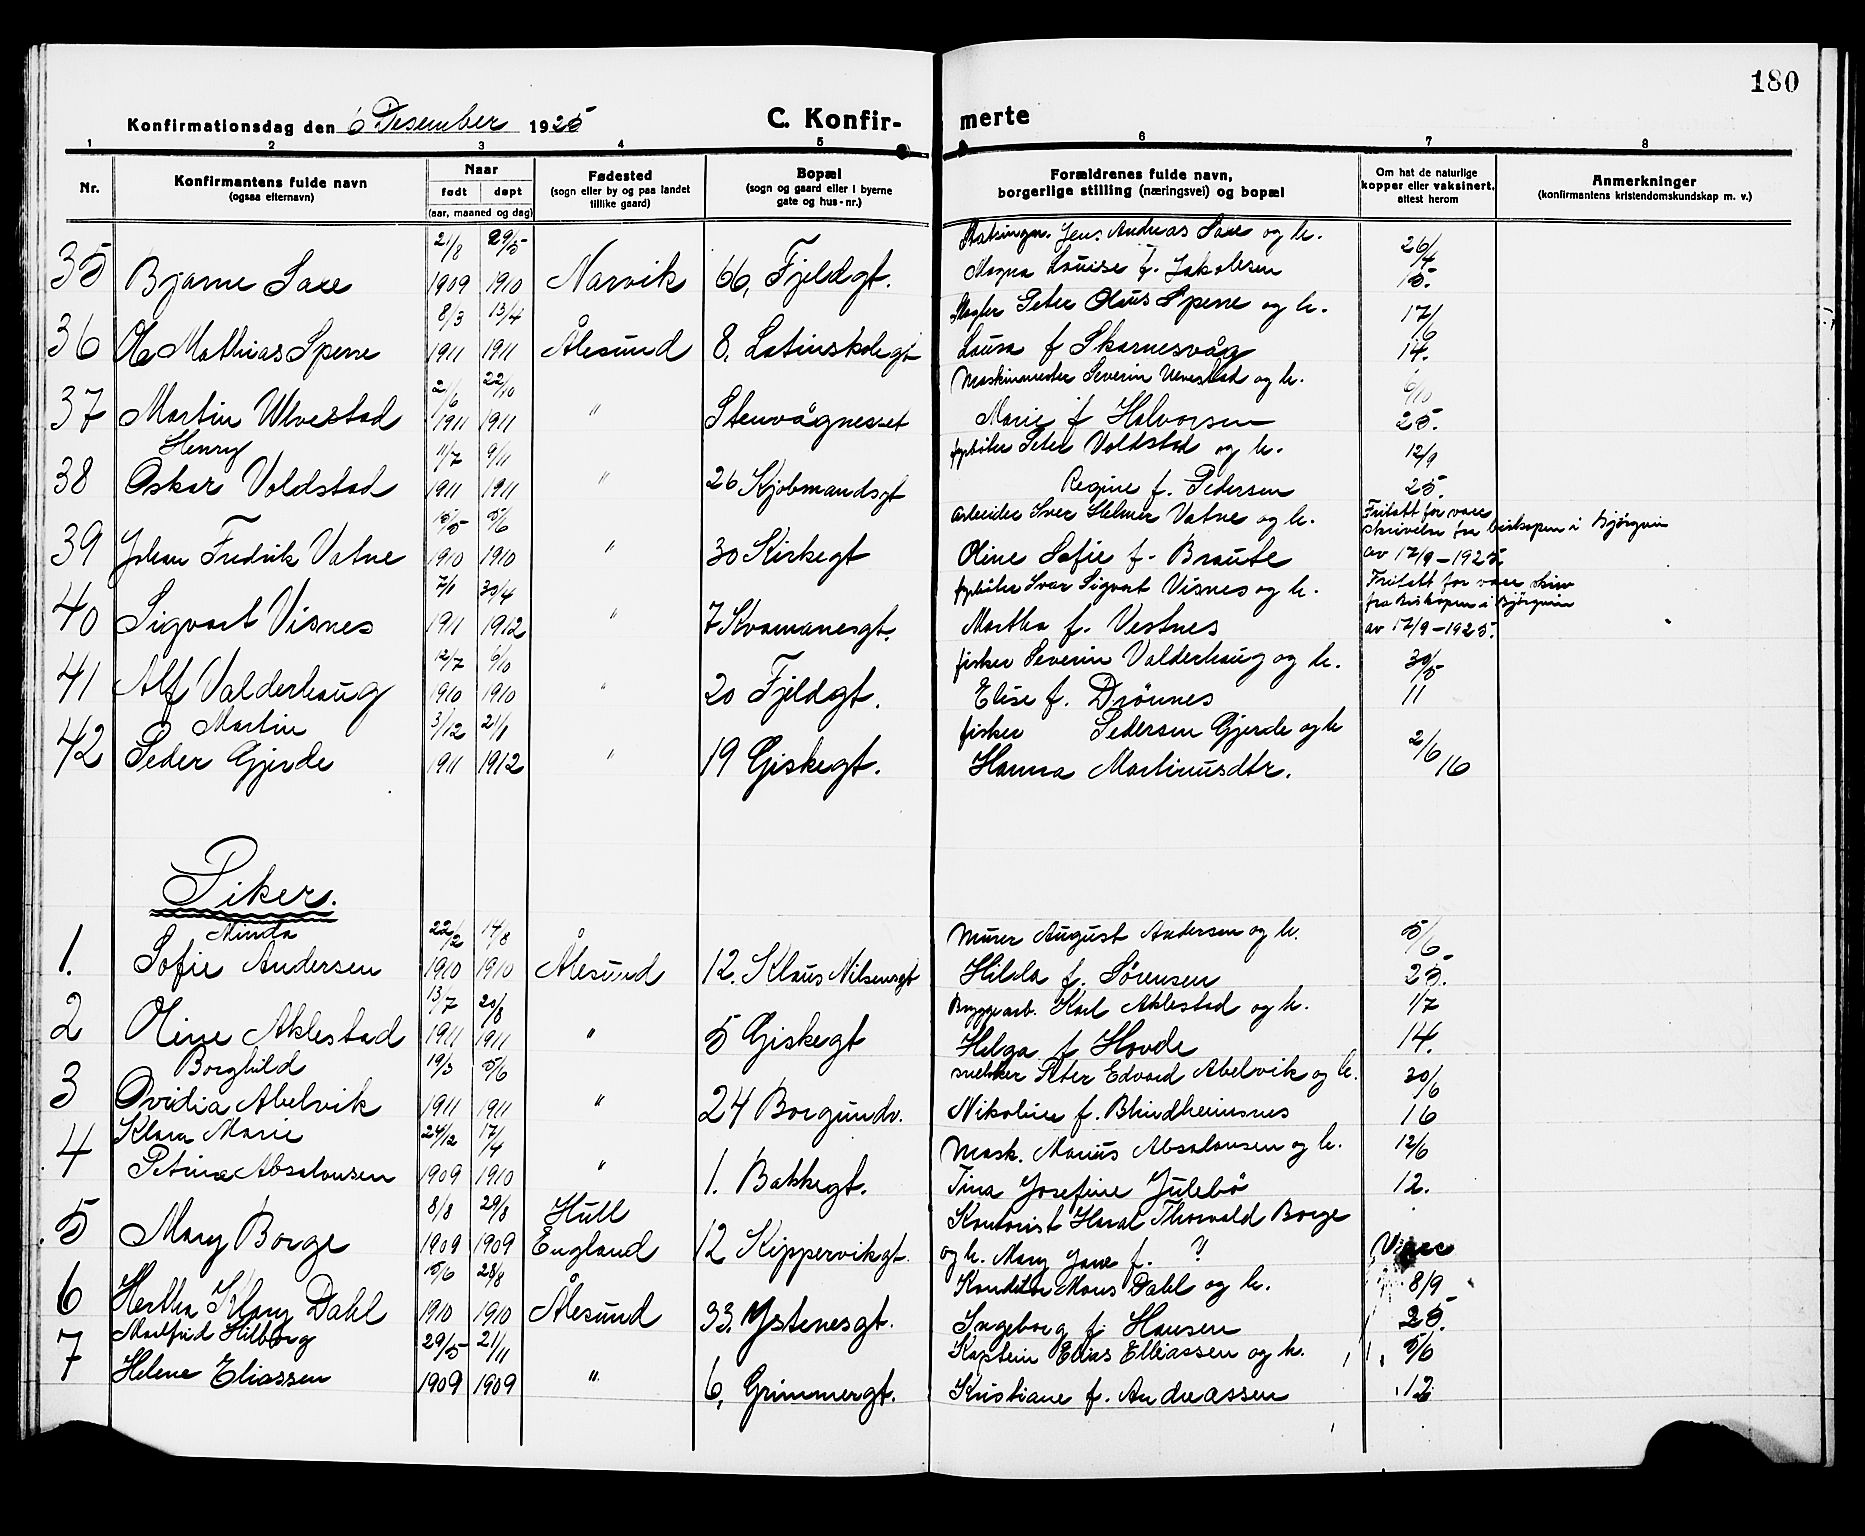 180
Konfirmationsdag den 6 Desember 1925 C. Konfir- merte
1 2 3 4 5 6 7 8
Nr. Konfirmantens fulde navn (ogsaa efternavn) Naar født døpt (aar, maaned og dag) Fødested (sogn eller by og paa landet tillike gaard) Bopæl (sogn og gaard eller i byerne gate og hus-nr.) Forældrenes fulde navn, borgerlige stilling (næringsvei) og bopæl Om hat de naturlige kopper eller vaksinert, attest herom Anmerkninger (konfirmantens kristendomskundskap m. v.)
21/8 29/5 Jens Andreas Saxe og h. 26/4
35 Bjarne Saxe 1909 1910 Narvik 66, Fjeldgt. Magna Louise f. Jakobsen 15.
8/3 13/4 Megler Peter Olaus Sperre og h. 17/6
36 Ole Mathias Sperre 1911 1911 Ålesund 8, Latinskolegt Laura f Skarnesvåg 14.
2/6 22/10 Maskinmester Severin Ulvestad og h. 6/10
37 Martin Ulvestad 1911 1911 " Stenvågneset Marie f Halvorsen 25.
Henry 11/7 9/11 fyrbøter Peter Voldstad og h. 12/9
38 Oskar Voldstad 1911 1911 " 26 Kjøbmandsgt Regine f. Pedersen 25.
15/5 5/6 arbeider Iver Helmer Vatne og h. Fritatt for vacc
skrivelse fra biskopen i Bjørgvin
39 Johan Fredrik Vatne 1910 1910 " 30 Kirkegt Oline Sofie f. Braute av 17/9-1925
7/1 30/4 fyrbøter Ivar Sigvart Visnes og h. Fritatt for vacc skriv
fra Biskopen i Bjørgvin
40 Sigvart Visnes 1911 1912 " 7 Kvamanesgt. Martha f. Vestnes av 17/9-1925.
12/7 6/10 fisker Severin Valderhaug og h. 30/5
41 Alf Valderhaug 1910 1910 " 20 Fjeldgt. Elise f. Drønnes 11
Martin 3/12 21/1 fisker Pedersen Gjerde og h 2/6
42 Peder Gjerde 1911 1912 " 19 Giskegt. Hanna Martinusdtr. 16
Piker.
Minda 22/2 14/8 Murer August Andersen og h. 5/6
1. Sofie Andersen 1910 1910 Ålesund 12. Klaus Nilsensgt Hilda f. Sørensen 25.
13/7 20/8 Bryggearb. Karl Aklestad og h. 1/7
2 Oline Aklestad 1911 1911 " 5 Giskegt Helga f Hovde 14.
Borghild 19/3 5/6 snekker Peter Edvard Abelvik og h. 20/6
3 Ovidia Abelvik 1911 1911 " 24 Borgundv. Nikoline f. Blindheimsnes 16
Klara Marie 24/12 17/4 Mask. Marius Absalonsen og h. 12/6
4 Petrine Absalonsen 1909 1910 " 1. Bakkegt. Tina Josefine Julebø 12.
8/8 29/8 Hull Kontorist Haral Thorvald Borge
5 Mary Borge 1909 1909 England 12 Kippervikgt. og h. Mary Jane f. ?
15/6 28/8 Konditor Mons Dahl og h. 8/9
6 Hertha Klary Dahl 1910 1910 Ålesund 33. Ystenesgt. Ingeborg f. Hansen 25.
Malfrid Hilborg 29/5 21/11 Kaptein Elias Elliassen og h. 5/6
7 Helene Eliassen 1909 1909 " 6, Grimmergt. Kristiane f. Andreassen 12